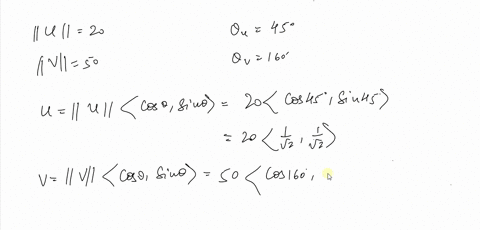 ||u|| = 20 θu = 45°
||V|| = 50 θv = 160°
u = ||u|| <cosθ, sinθ> = 20 <cos45°, sin45°>
= 20 <1/√2, 1/√2>
V = ||V|| <cosθ, sinθ> = 50 <cos160°,